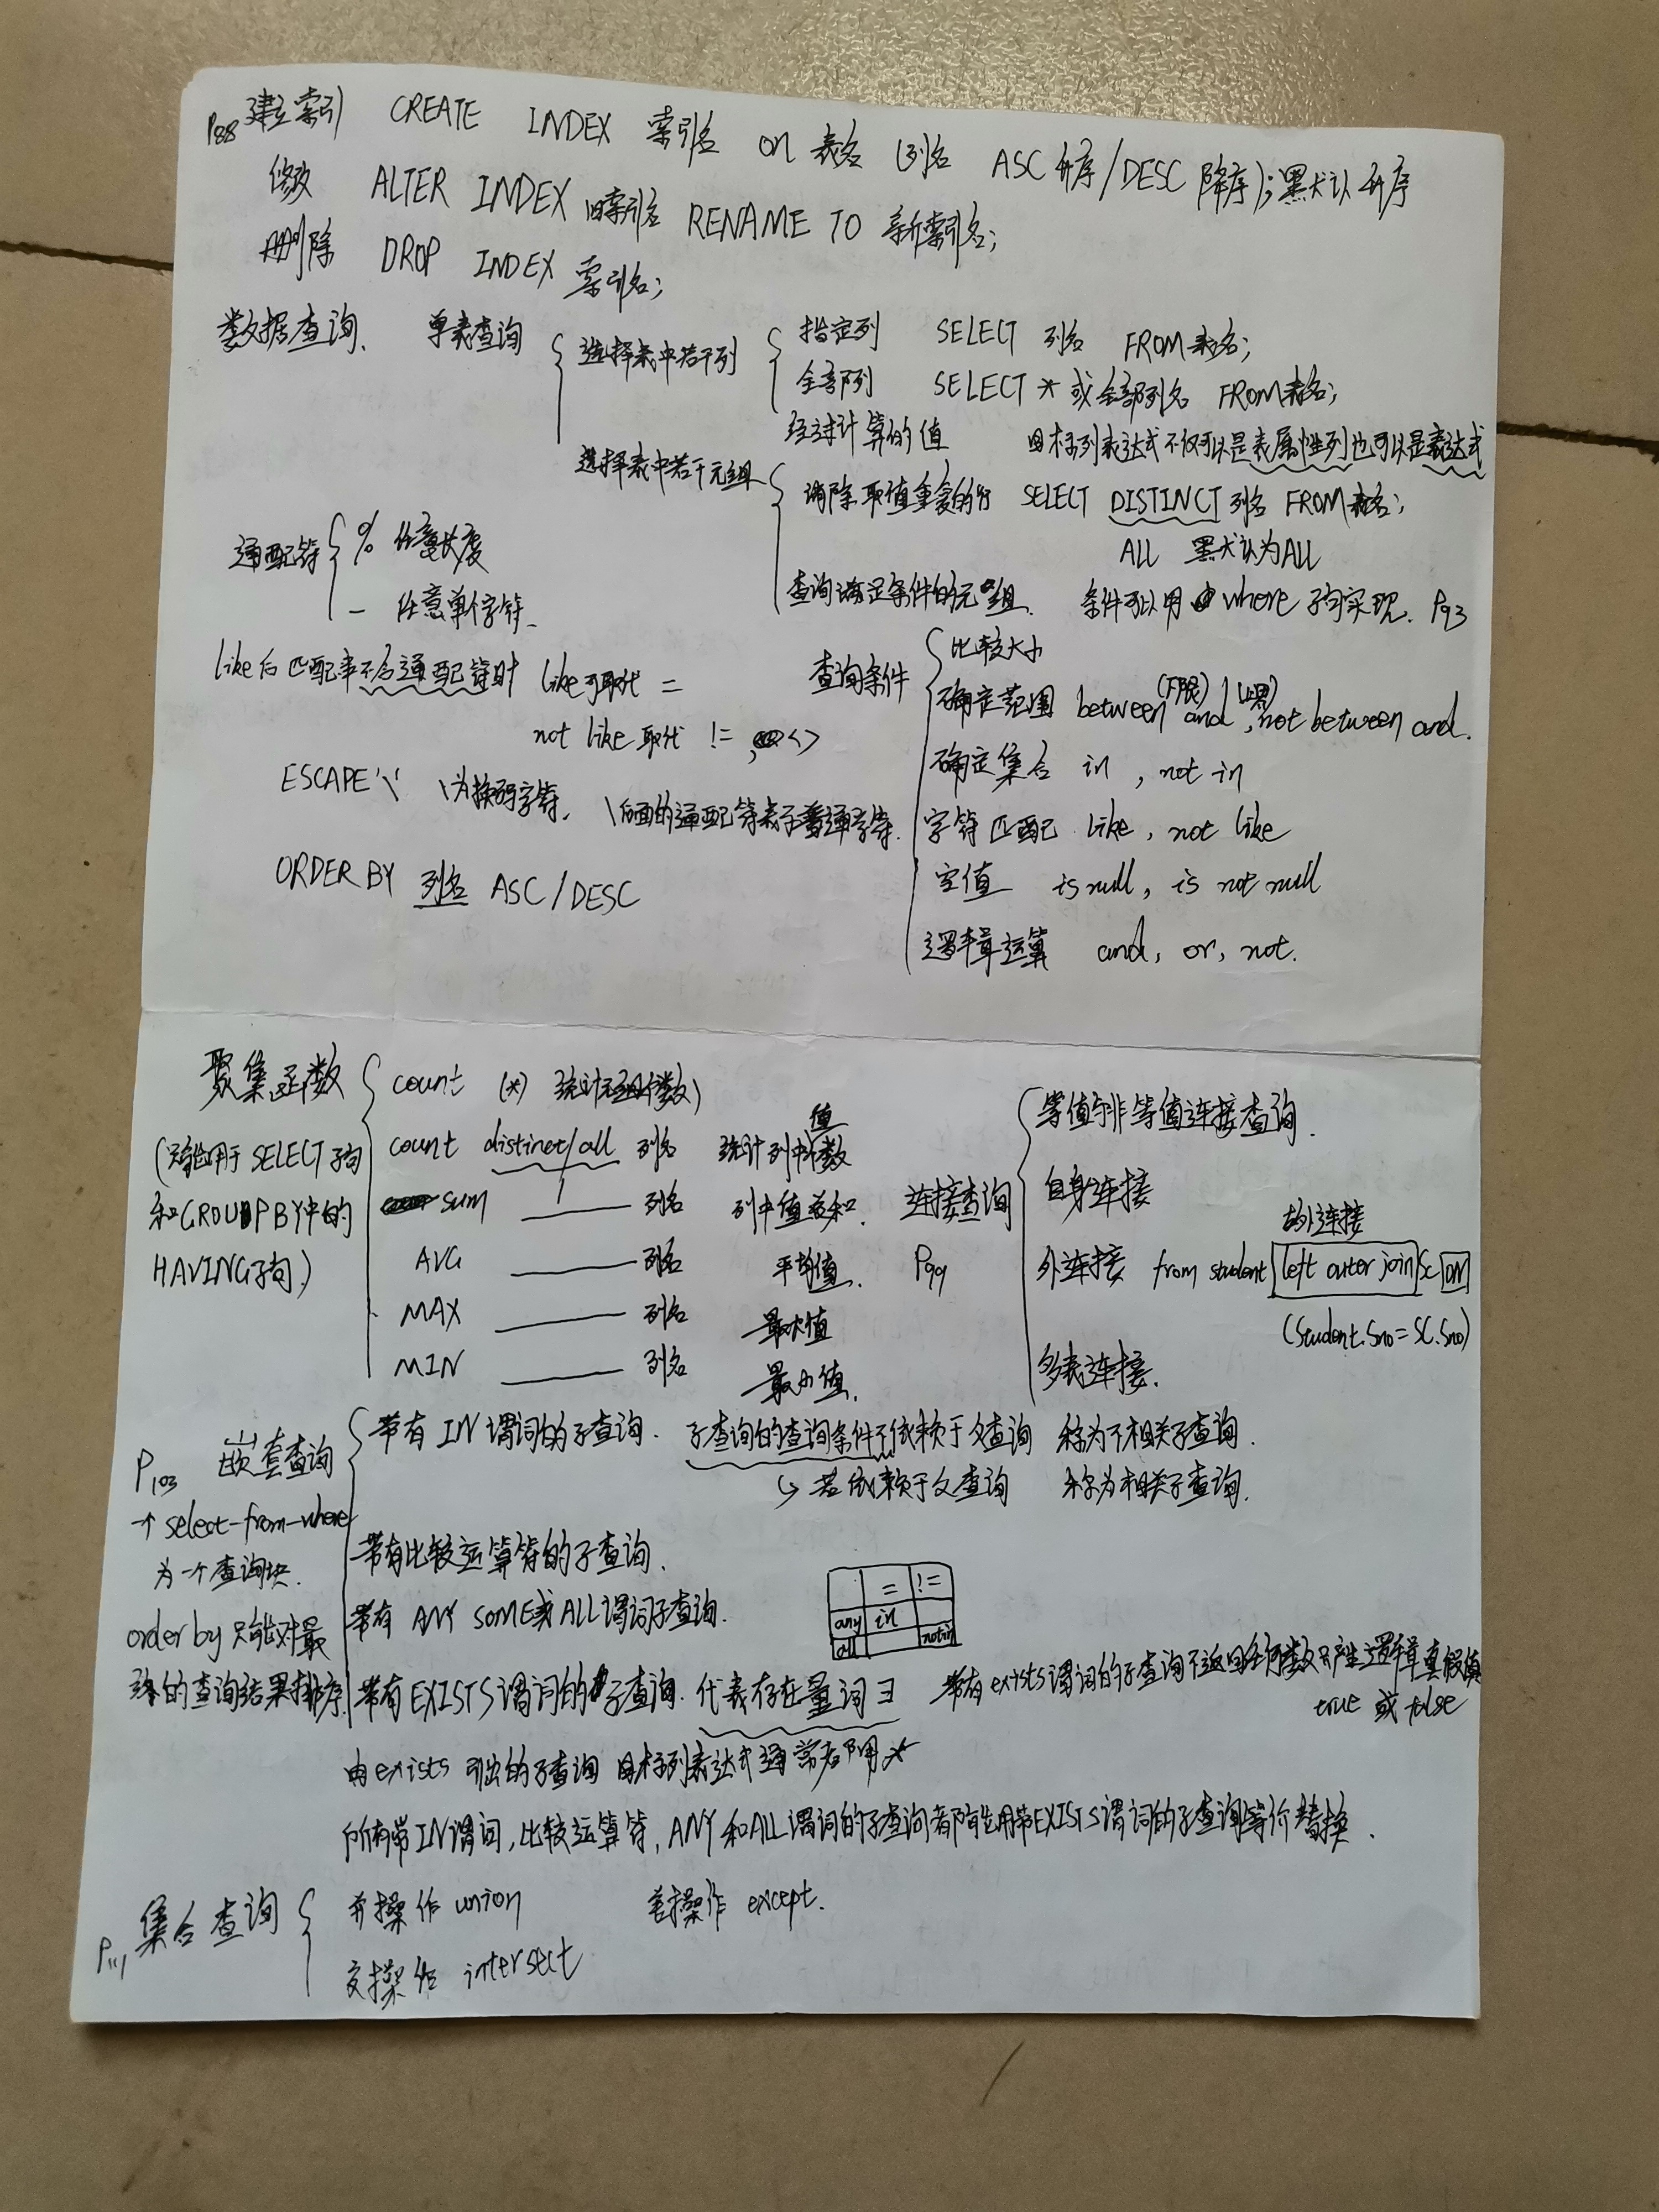 P88 建立索引 CREATE INDEX 索引名 on 表名 (列名 ASC 升序/DESC 降序);默认升序
修改 ALTER INDEX 旧索引名 RENAME TO 新索引名;
删除 DROP INDEX 索引名;
数据查询、 单表查询
选择表中若干列
指定列 SELECT 列名 FROM 表名;
全部列 SELECT * 或全部列名 FROM 表名;
经过计算的值 目标列表达式不仅可以是表属性列也可以是表达式
选择表中若干元组
消除取值重复的行 SELECT DISTINCT 列名 FROM 表名;
ALL 默认为ALL
查询满足条件的元组. 条件可以用 where 子句实现. P93
通配符
% 任意长度
_ 任意单个字符
like后匹配串不含通配符时 like可取代 =
not like 取代 != , <>
ESCAPE'\' \为换码字符, \后面的通配符表示普通字符.
ORDER BY 列名 ASC/DESC
查询条件
比较大小
确定范围 between(下限) and (上界), not between and.
确定集合 in , not in
字符匹配 like, not like
空值 is null, is not null
逻辑运算 and, or, not.
聚集函数
(只能用于SELECT子句
和GROUP BY中的
HAVING子句)
count (*) 统计元组个数)
count distinct/all 列名 统计列中值个数
sum 列名 列中值总和.
AVG 列名 平均值.
MAX 列名 最大值
MIN 列名 最小值.
连接查询
P99
等值与非等值连接查询.
自身连接
左外连接
外连接 from student left outer join SC ON
(Student.Sno=SC.Sno)
多表连接.
P103 嵌套查询
→ select-from-where
为一个查询块.
order by 只能对最
终的查询结果排序
带有 IN 谓词的子查询. 子查询的查询条件不依赖于父查询 称为不相关子查询.
↪ 若依赖于父查询 称为相关子查询.
带有比较运算符的子查询.
带有 ANY SOME或ALL谓词子查询.
= !=
any in
all not in
带有EXISTS谓词的子查询. 代表存在量词∃ 带有exists谓词的子查询不返回任何数只产生逻辑真假值
true 或 false
由exists 引出的子查询 目标列表达式通常都用*
所有带IN谓词,比较运算符,ANY和ALL谓词的子查询都能用带EXISTS谓词的子查询等价替换.
P111 集合查询
并操作 union 差操作 except.
交操作 intersect